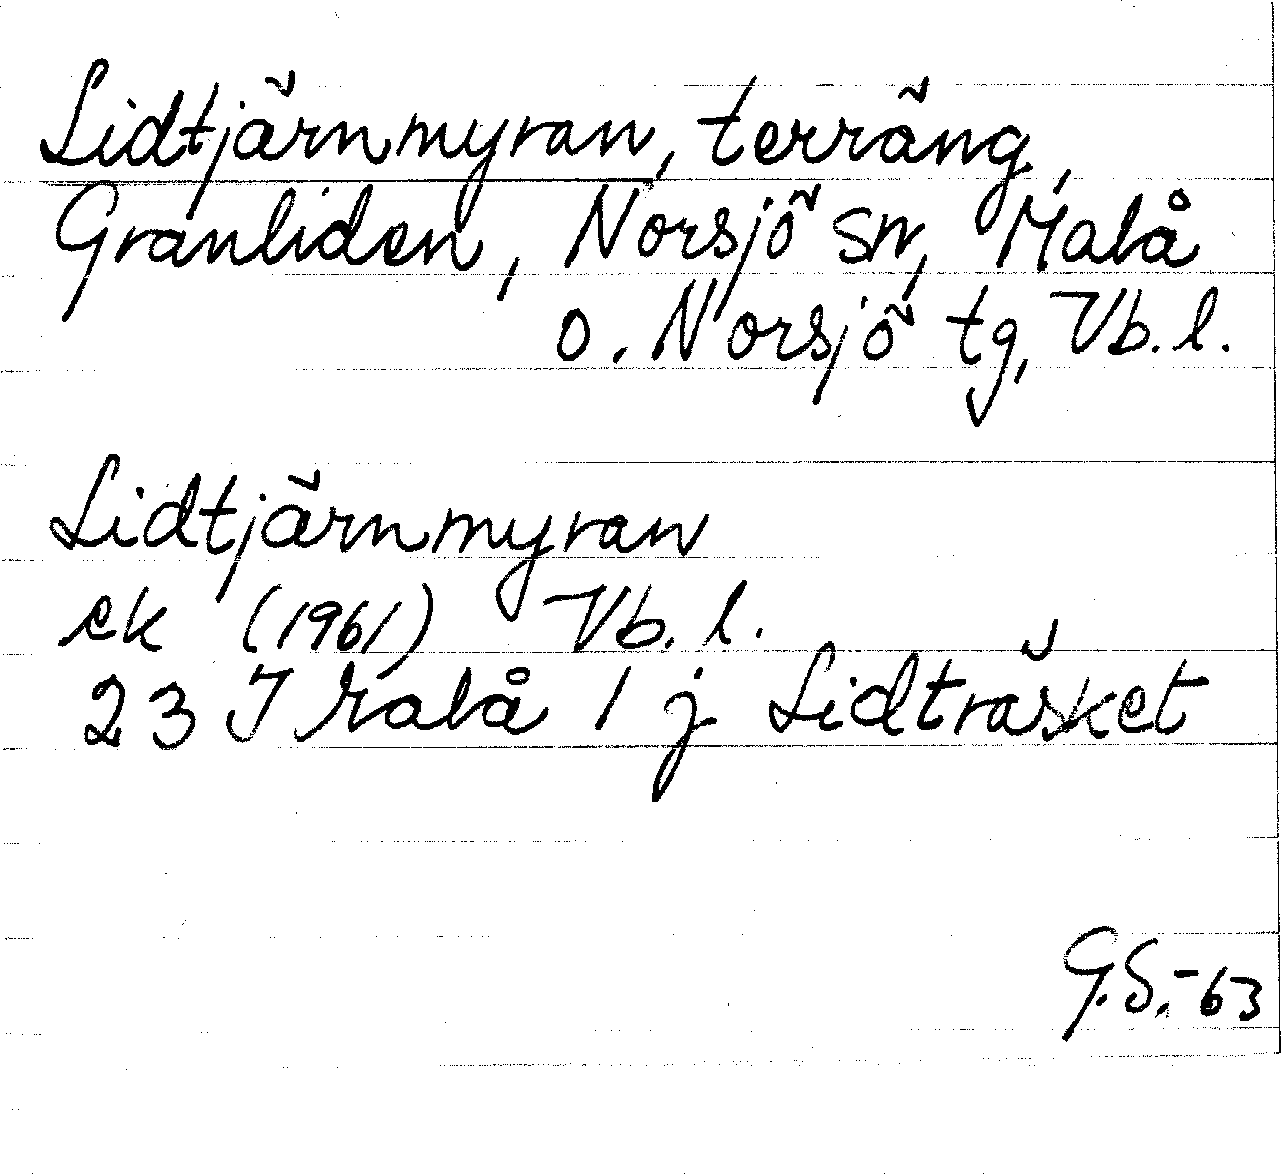 Lidtjärnmyran, terräng,
Granliden, Norsjö sn, Malå
o. Norsjö tg, Vb. l.
Lidtjärnmyran
ek (1961) Vb. l.
23 J Malå 1 j Lidträsket
G.S.-63